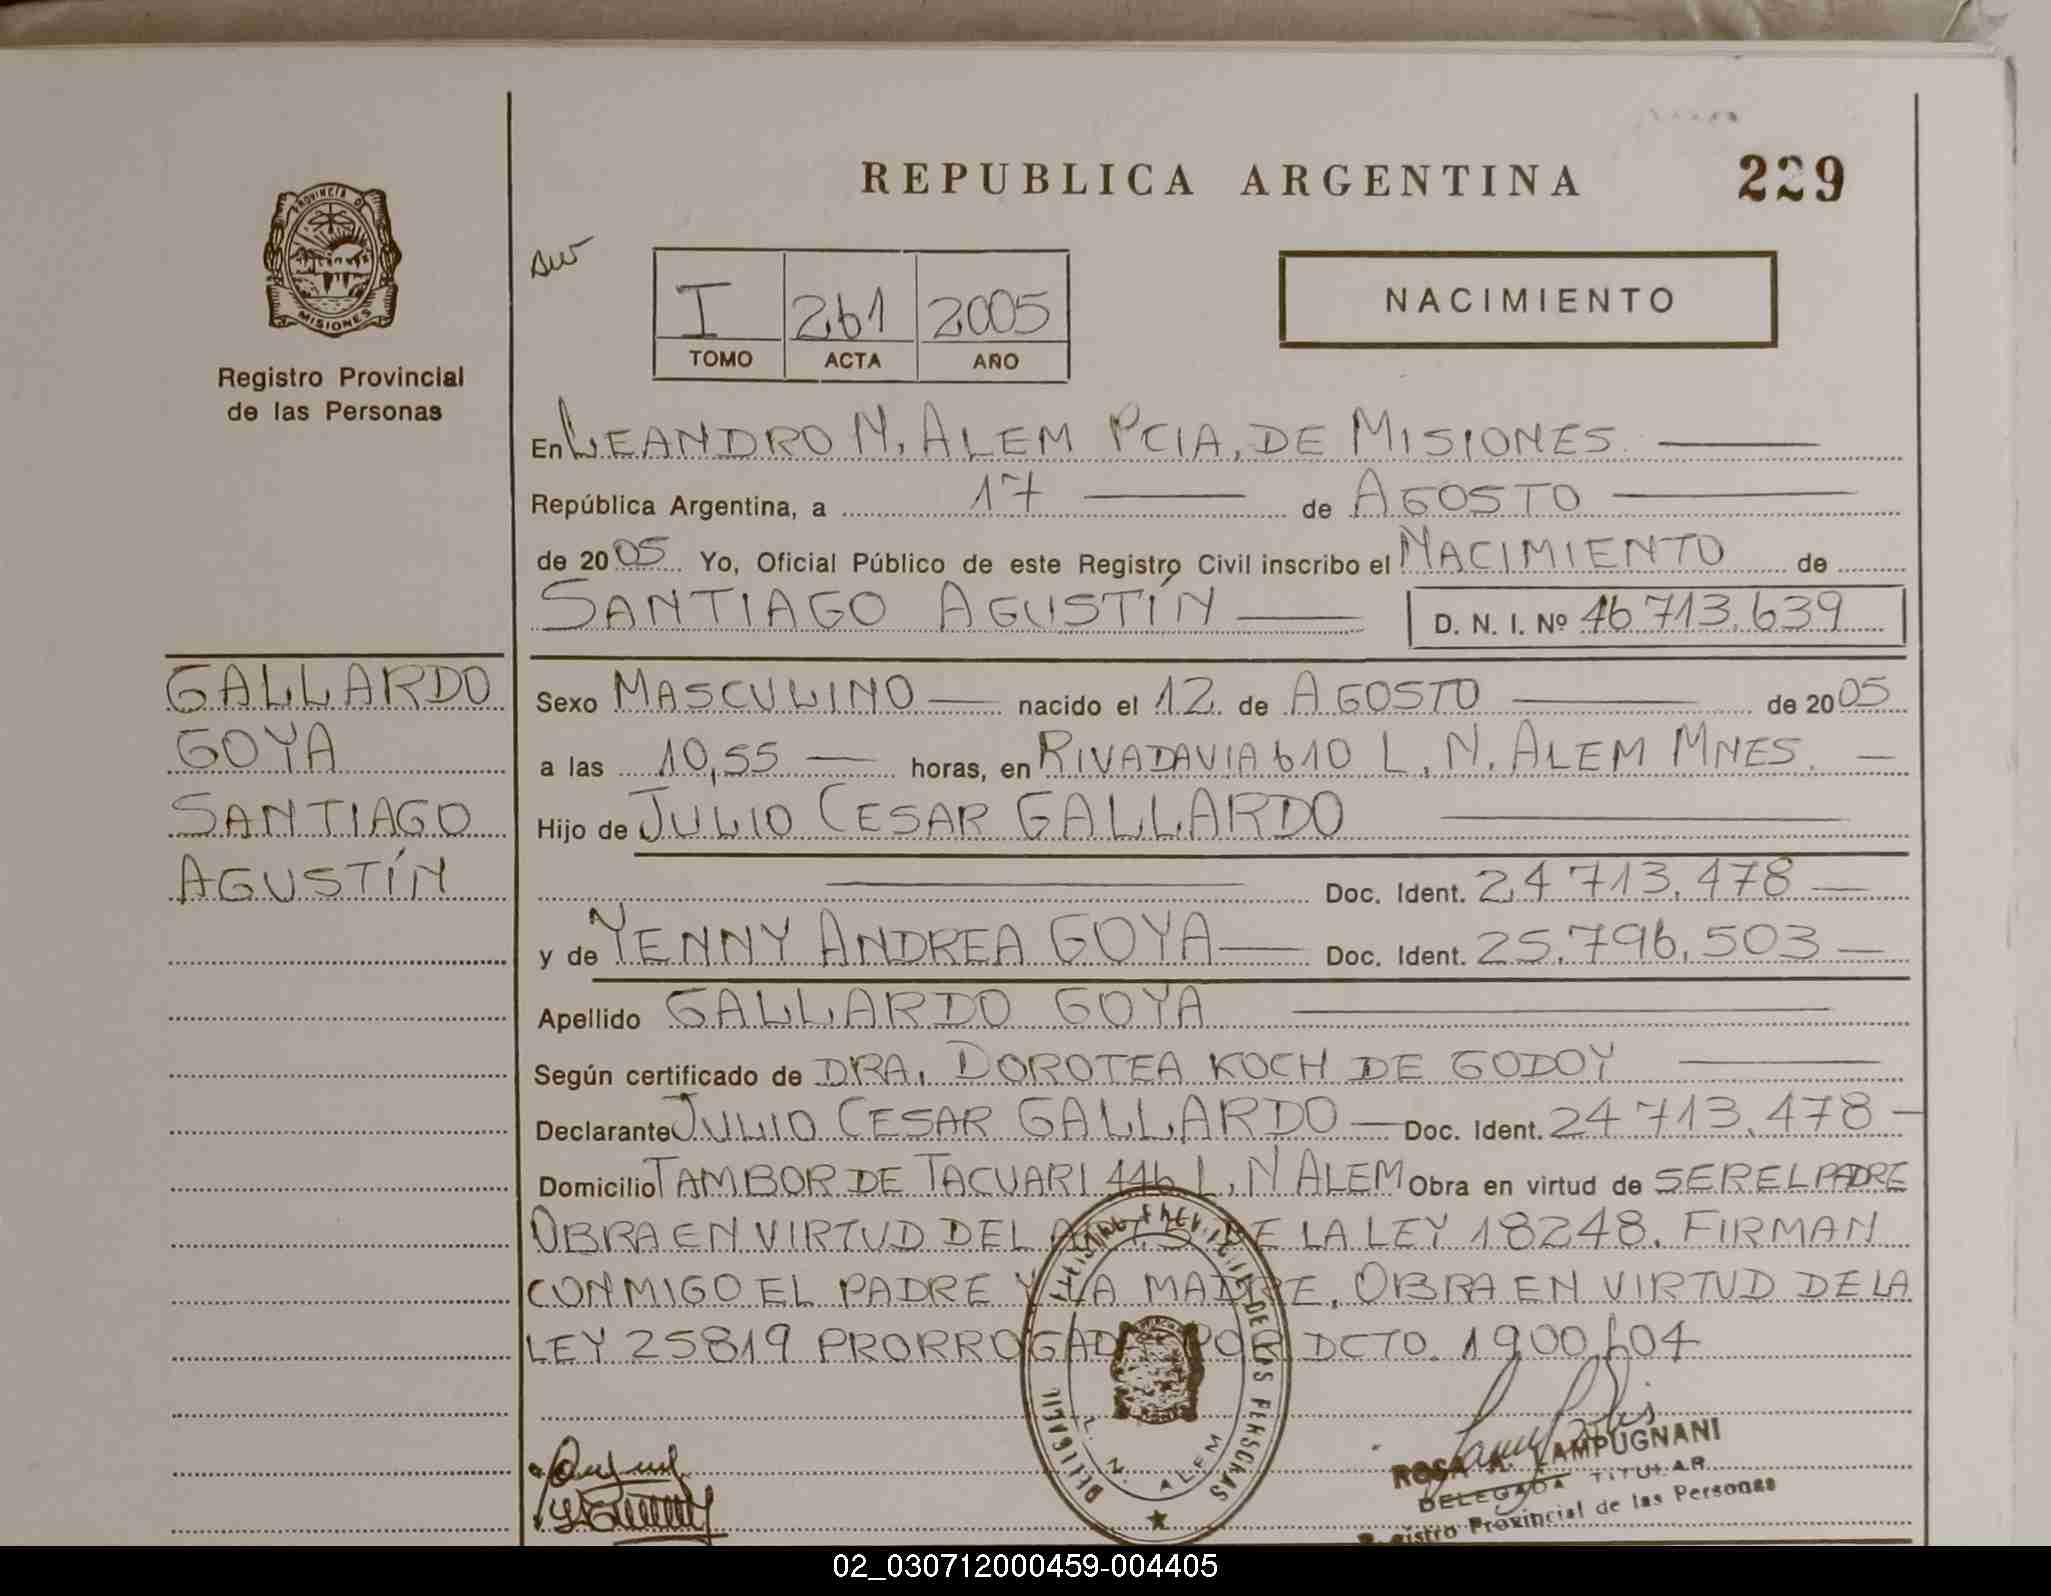 REPUBLICA ARGENTINA
229
PROVINCIA D
MISIONES
Registro Provincial
de las Personas
I 261 2005
TOMO ACTA AÑO
NACIMIENTO
En LEANDRO N. ALEM PCIA. DE MISIONES
República Argentina, a 17 de AGOSTO
de 2005 Yo, Oficial Público de este Registro Civil inscribo el NACIMIENTO de
SANTIAGO AGUSTÍN D. N. I. Nº 46 713.639
GALLARDO
GOYA
SANTIAGO
AGUSTÍN
Sexo MASCULINO nacido el 12 de AGOSTO de 2005
a las 10,55 horas, en RIVADAVIA 610 L. N. ALEM MNES.
Hijo de JULIO CESAR GALLARDO
Doc. Ident. 24 713.478
y de YENNY ANDREA GOYA Doc. Ident. 25.796.503
Apellido GALLARDO GOYA
Según certificado de DRA. DOROTEA KOCH DE GODOY
Declarante JULIO CESAR GALLARDO Doc. Ident. 24 713.478
Domicilio TAMBOR DE TACUARI 446 L. N ALEM Obra en virtud de SER EL PADRE
OBRA EN VIRTUD DEL ART. 5 DE LA LEY 18248. FIRMAN
CONMIGO EL PADRE Y LA MADRE. OBRA EN VIRTUD DE LA
LEY 25819 PRORROGADA POR DCTO. 1900/04
DE LAS PERSONAS
L. N. ALEM
ROSA A. LAMPUGNANI
DELEGADA TITULAR
Registro Provincial de las Personas
02_030712000459-004405